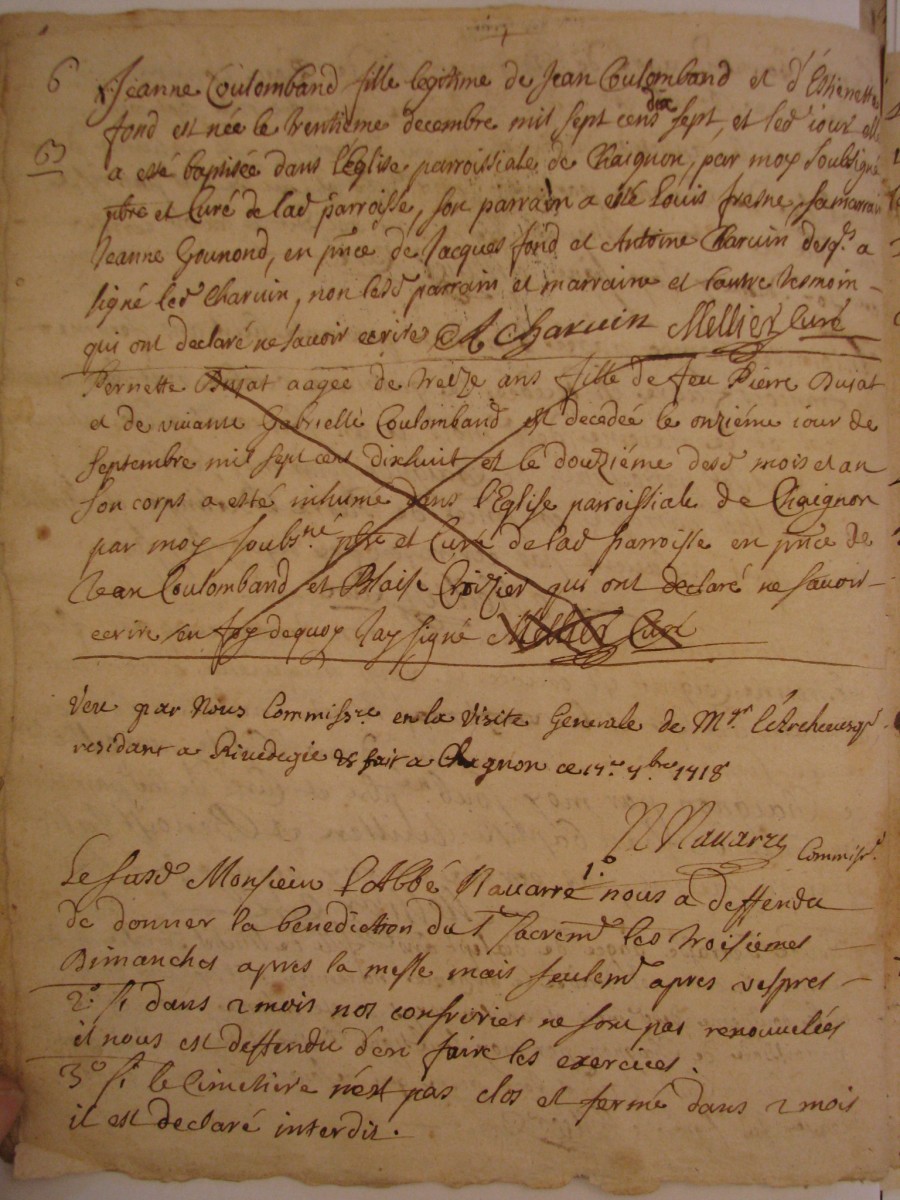 6 Jeanne Coulomband fille legitime de Jean Coulomband et d'Estienette
63 fond est née le trentieme decembre mil sept cens dix sept, et led iour elle
a esté baptisée dans l'Eglise parroissiale de Chaignon, par moy soubsigné
pbre et Curé de lad parroisse, son parrain a esté Louis fresne, sa marrai
Jeanne Gounond, en pnce de Jacques fond et Antoine Charuin desqls a
signé led Charuin, non lesd parrain et marraine et l'autre tesmoin
qui ont declaré ne sauoir ecrire A Charuin Mellier Curé
Pernette Dusat aagée de treize ans fille de feu Pierre Dusat
et de viuante Gabrielle Coulomband est decedeé le onziéme iour de
septembre mil sept cent dixhuit et le douziéme desd mois et an
son corps a esté inhumé dans l'Eglise parroissiale de Chaignon
par moy soubsné pbre et Curé de lad parroisse en pnce de
Jean Coulomband et Blaise Croizier qui ont declaré ne sauoir
ecrire en foy dequoy Jay signé Mellier Curé
Veu par Nous Commissre en la Visite Generale de Mgr l'Archeuesq
residant a Riuedegie & fait a Chagnon ce 7bre 1718
N Nauarre Commissr.
Le susd Monsieur l'Abbé Nauarre 1.º nous a deffendu
de donner la benediction du St Sacremt les troisiemes
Dimanches apres la messe mais seulemt apres vespres
2.º Si dans 2 mois nos confreries ne sont pas renouuelées
il nous est deffendu d'en faire les exercices.
3.º Si le Cimetiere n'est pas clos et fermé dans 2 mois
il est declaré interdit.